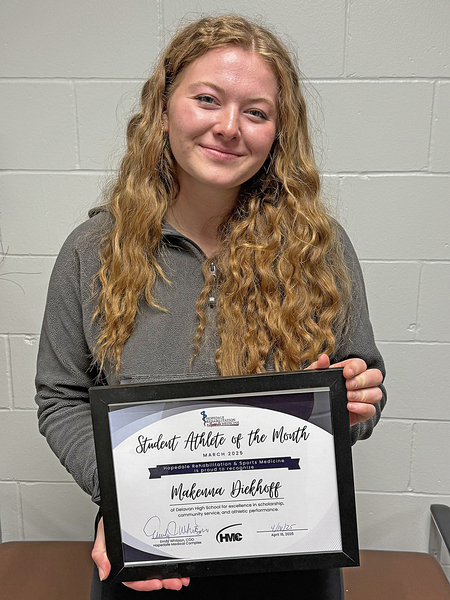 HOPEDALE
REHABILITATION
& SPORTS MEDICINE
Student Athlete of the Month
MARCH 2025
Hopedale Rehabilitation & Sports Medicine
is proud to recognize
Makenna Diekhoff
of Delavan High School for excellence in scholarship,
community service, and athletic performance.
Emily Whitson, COO
Hopedale Medical Complex
HMC
4/16/25
April 16, 2025